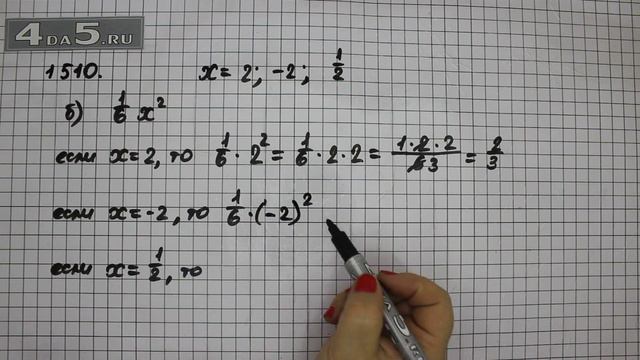 4DA5.RU
1510. x = 2; -2; 1/2
б) 1/6 x²
если x=2, то 1/6 · 2² = 1/6 · 2 · 2 = 1·2·2/6 3 = 2/3
если x=-2, то 1/6 · (-2)²
если x = 1/2, то